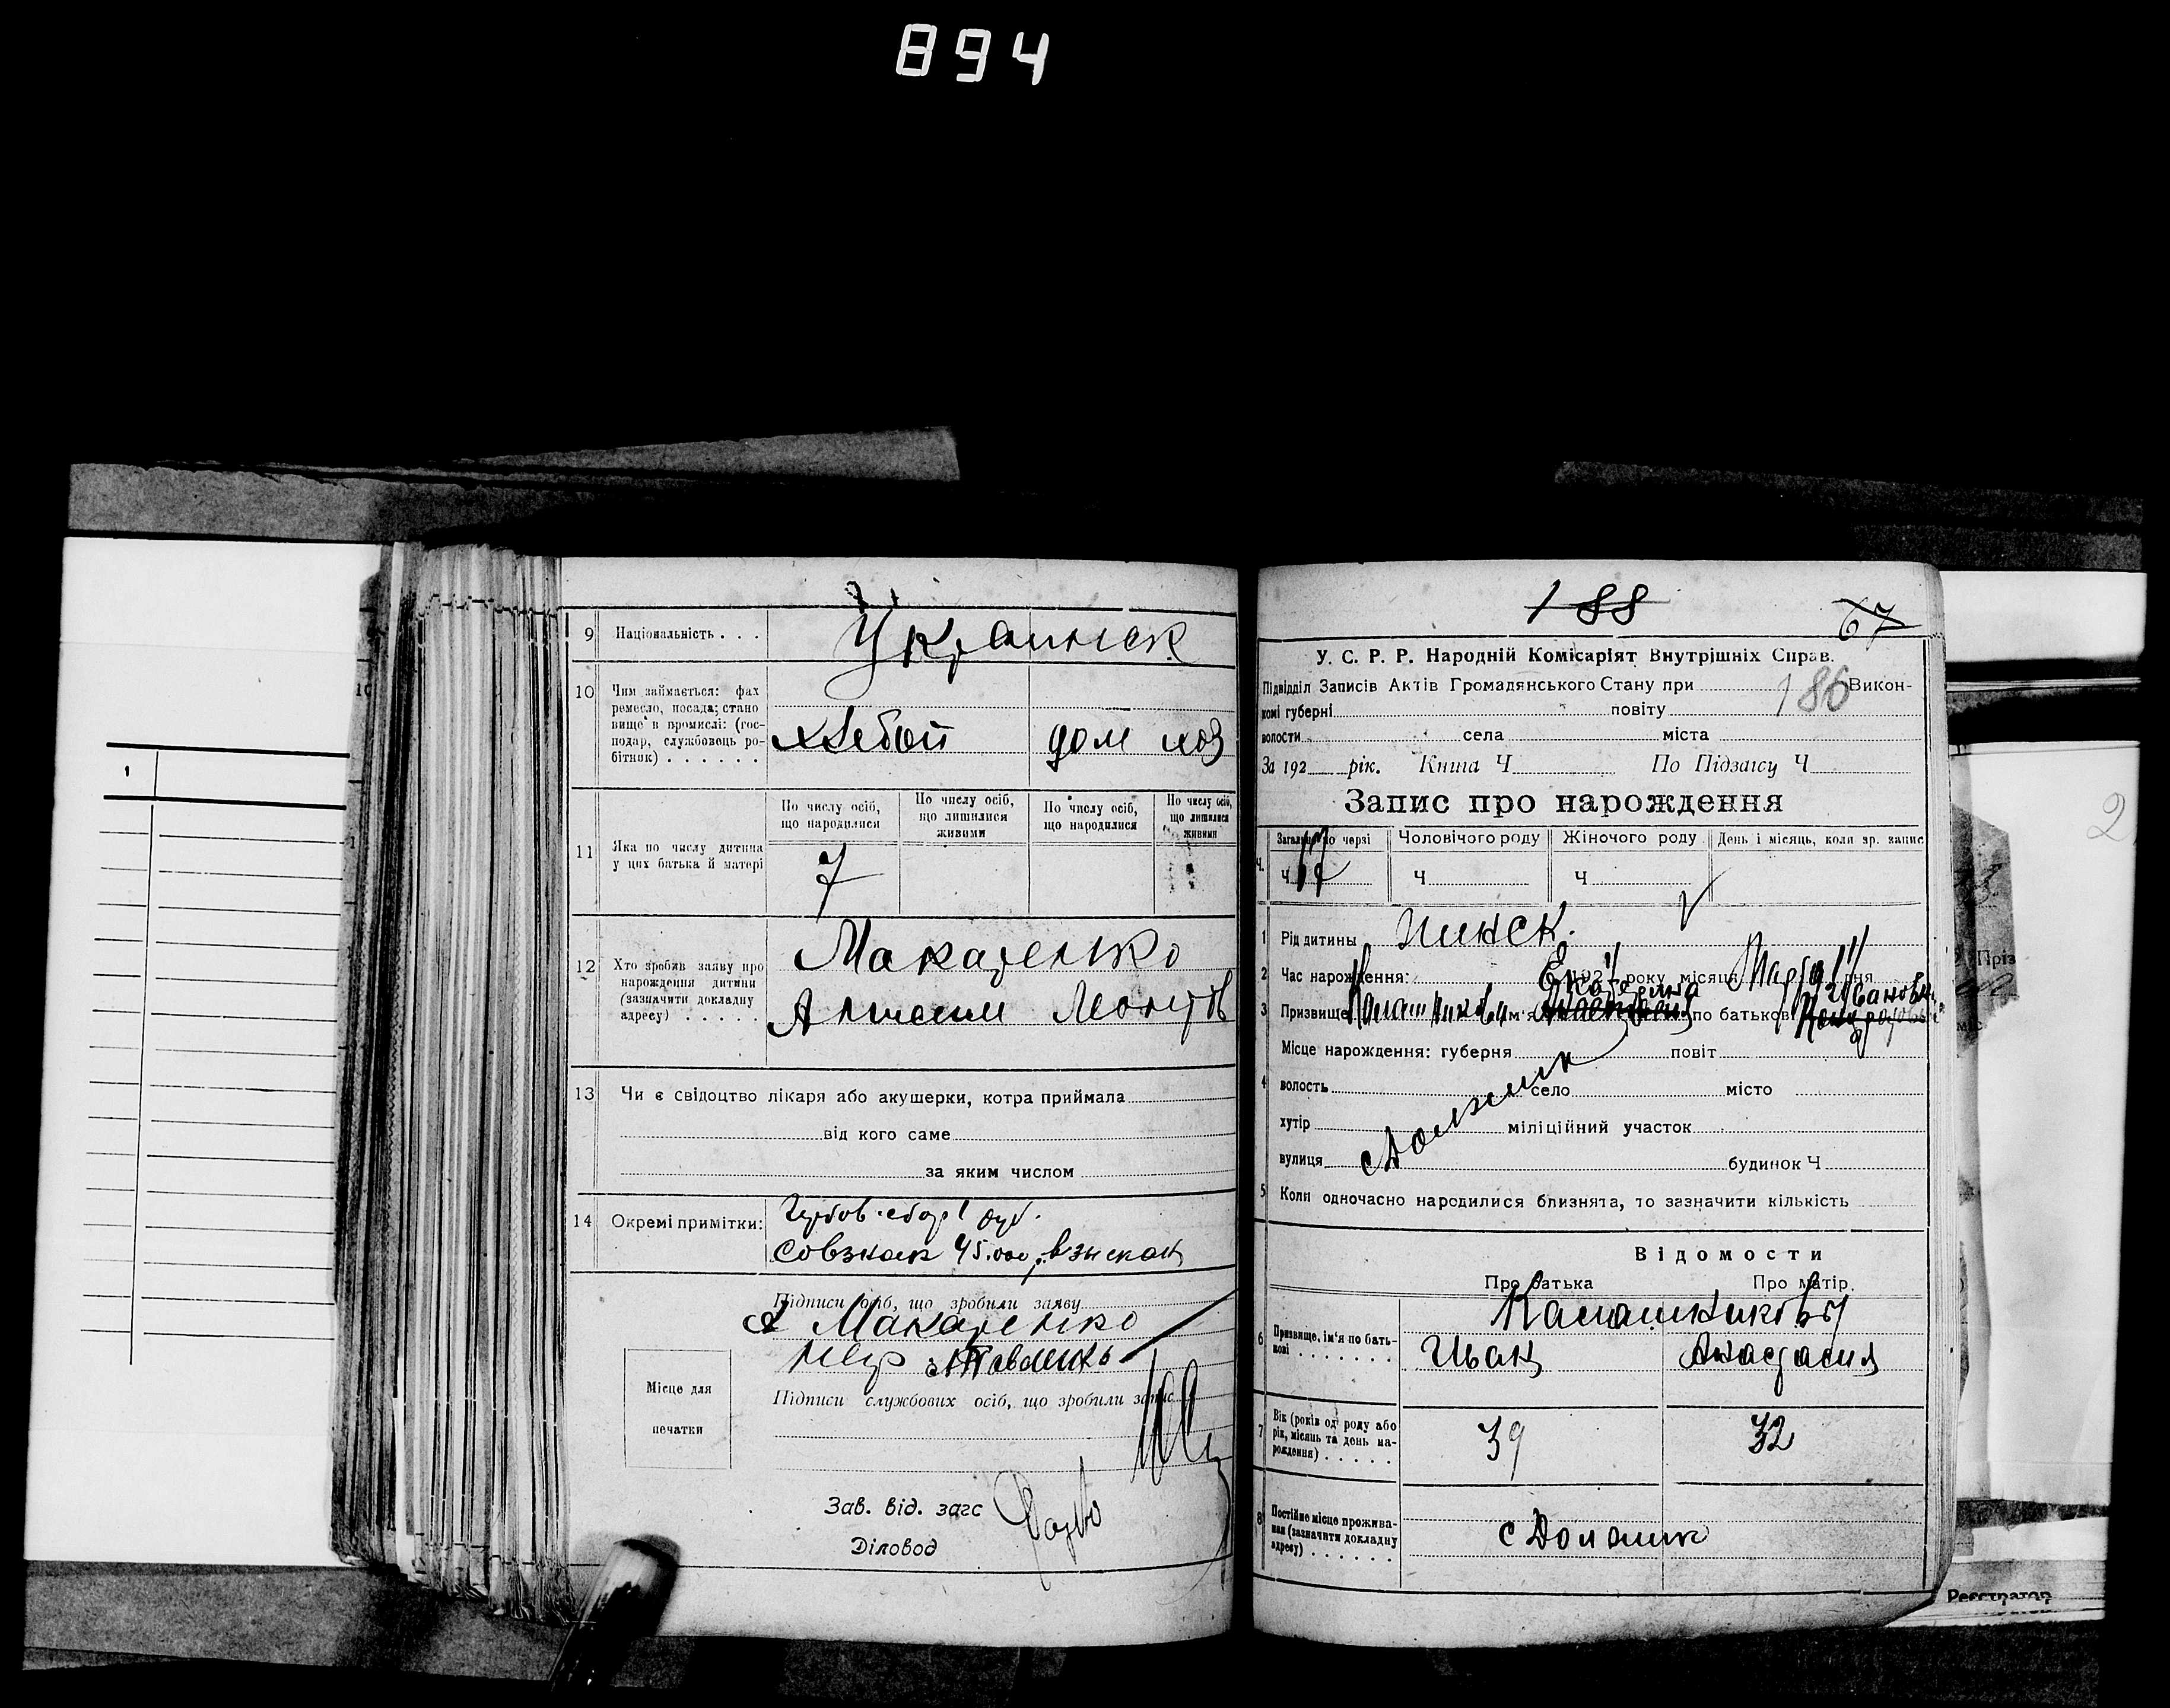 894
9 Національність . . .
Украинск
10 Чим займається: фах
ремесло, посада; стано
вище в промислі: (гос-
подар, службовець ро-
бітник) . . . . . .
хлебоп
дом хоз
11 Яка по числу дитина
у цих батька й матері
По числу осіб,
що народилися
По числу осіб,
що лишилися
живими
По числу осіб,
що народилися
По числу осіб,
що лишилися
живими
7
12 Хто зробив заяву про
нарождення дитини
(зазначити докладну
адресу) . . . . .
Макаренко
13 Чи є свідоцтво лікаря або акушерки, котра приймала
від кого саме
за яким числом
14 Окремі примітки:
совзнак 45.000 взыскан
Підписи осіб, що зробили заяву
А Макаренко
Місце для
печатки
Підписи службових осіб, що зробили запис
Зав. від. загс
Діловод
188
67
У. С. Р. Р. Народній Комісаріят Внутрішніх Справ.
Підвідділ Записів Актів Громадянського Стану при 186 Викон-
комі губерні повіту
волости села міста
За 192 рік. Книга Ч По Підзагсу Ч
Запис про нарождення
Загально по черзі
Чоловічого роду
Жіночого роду
День і місяць, коли зр. запис
Ч.
Ч
Ч
Ч
1 Рід дитини женск.
2 Час нарождення: 192 року місяця Марта 11 дня
Екатерина
Ивановн
3 Призвище ім'я по батькові
Місце нарождення: губерня повіт
4 волость село місто
хутір міліційний участок
с Должик
вулиця будинок Ч
5 Коли одночасно народилися близнята, то зазначити кількість
Відомости
Про батька
Про матір
6 Призвище, ім'я по бать-
кові . . . . . . .
Калашниковы
Иван
Анастасия
7 Вік (років од роду або
рік, місяць та день на-
рождення) . . . . .
39
32
8 Постійне місце прожива-
ння (зазначити докладну
адресу) . . . . . .
с Должик
1
2
Пріз
Реєстратор